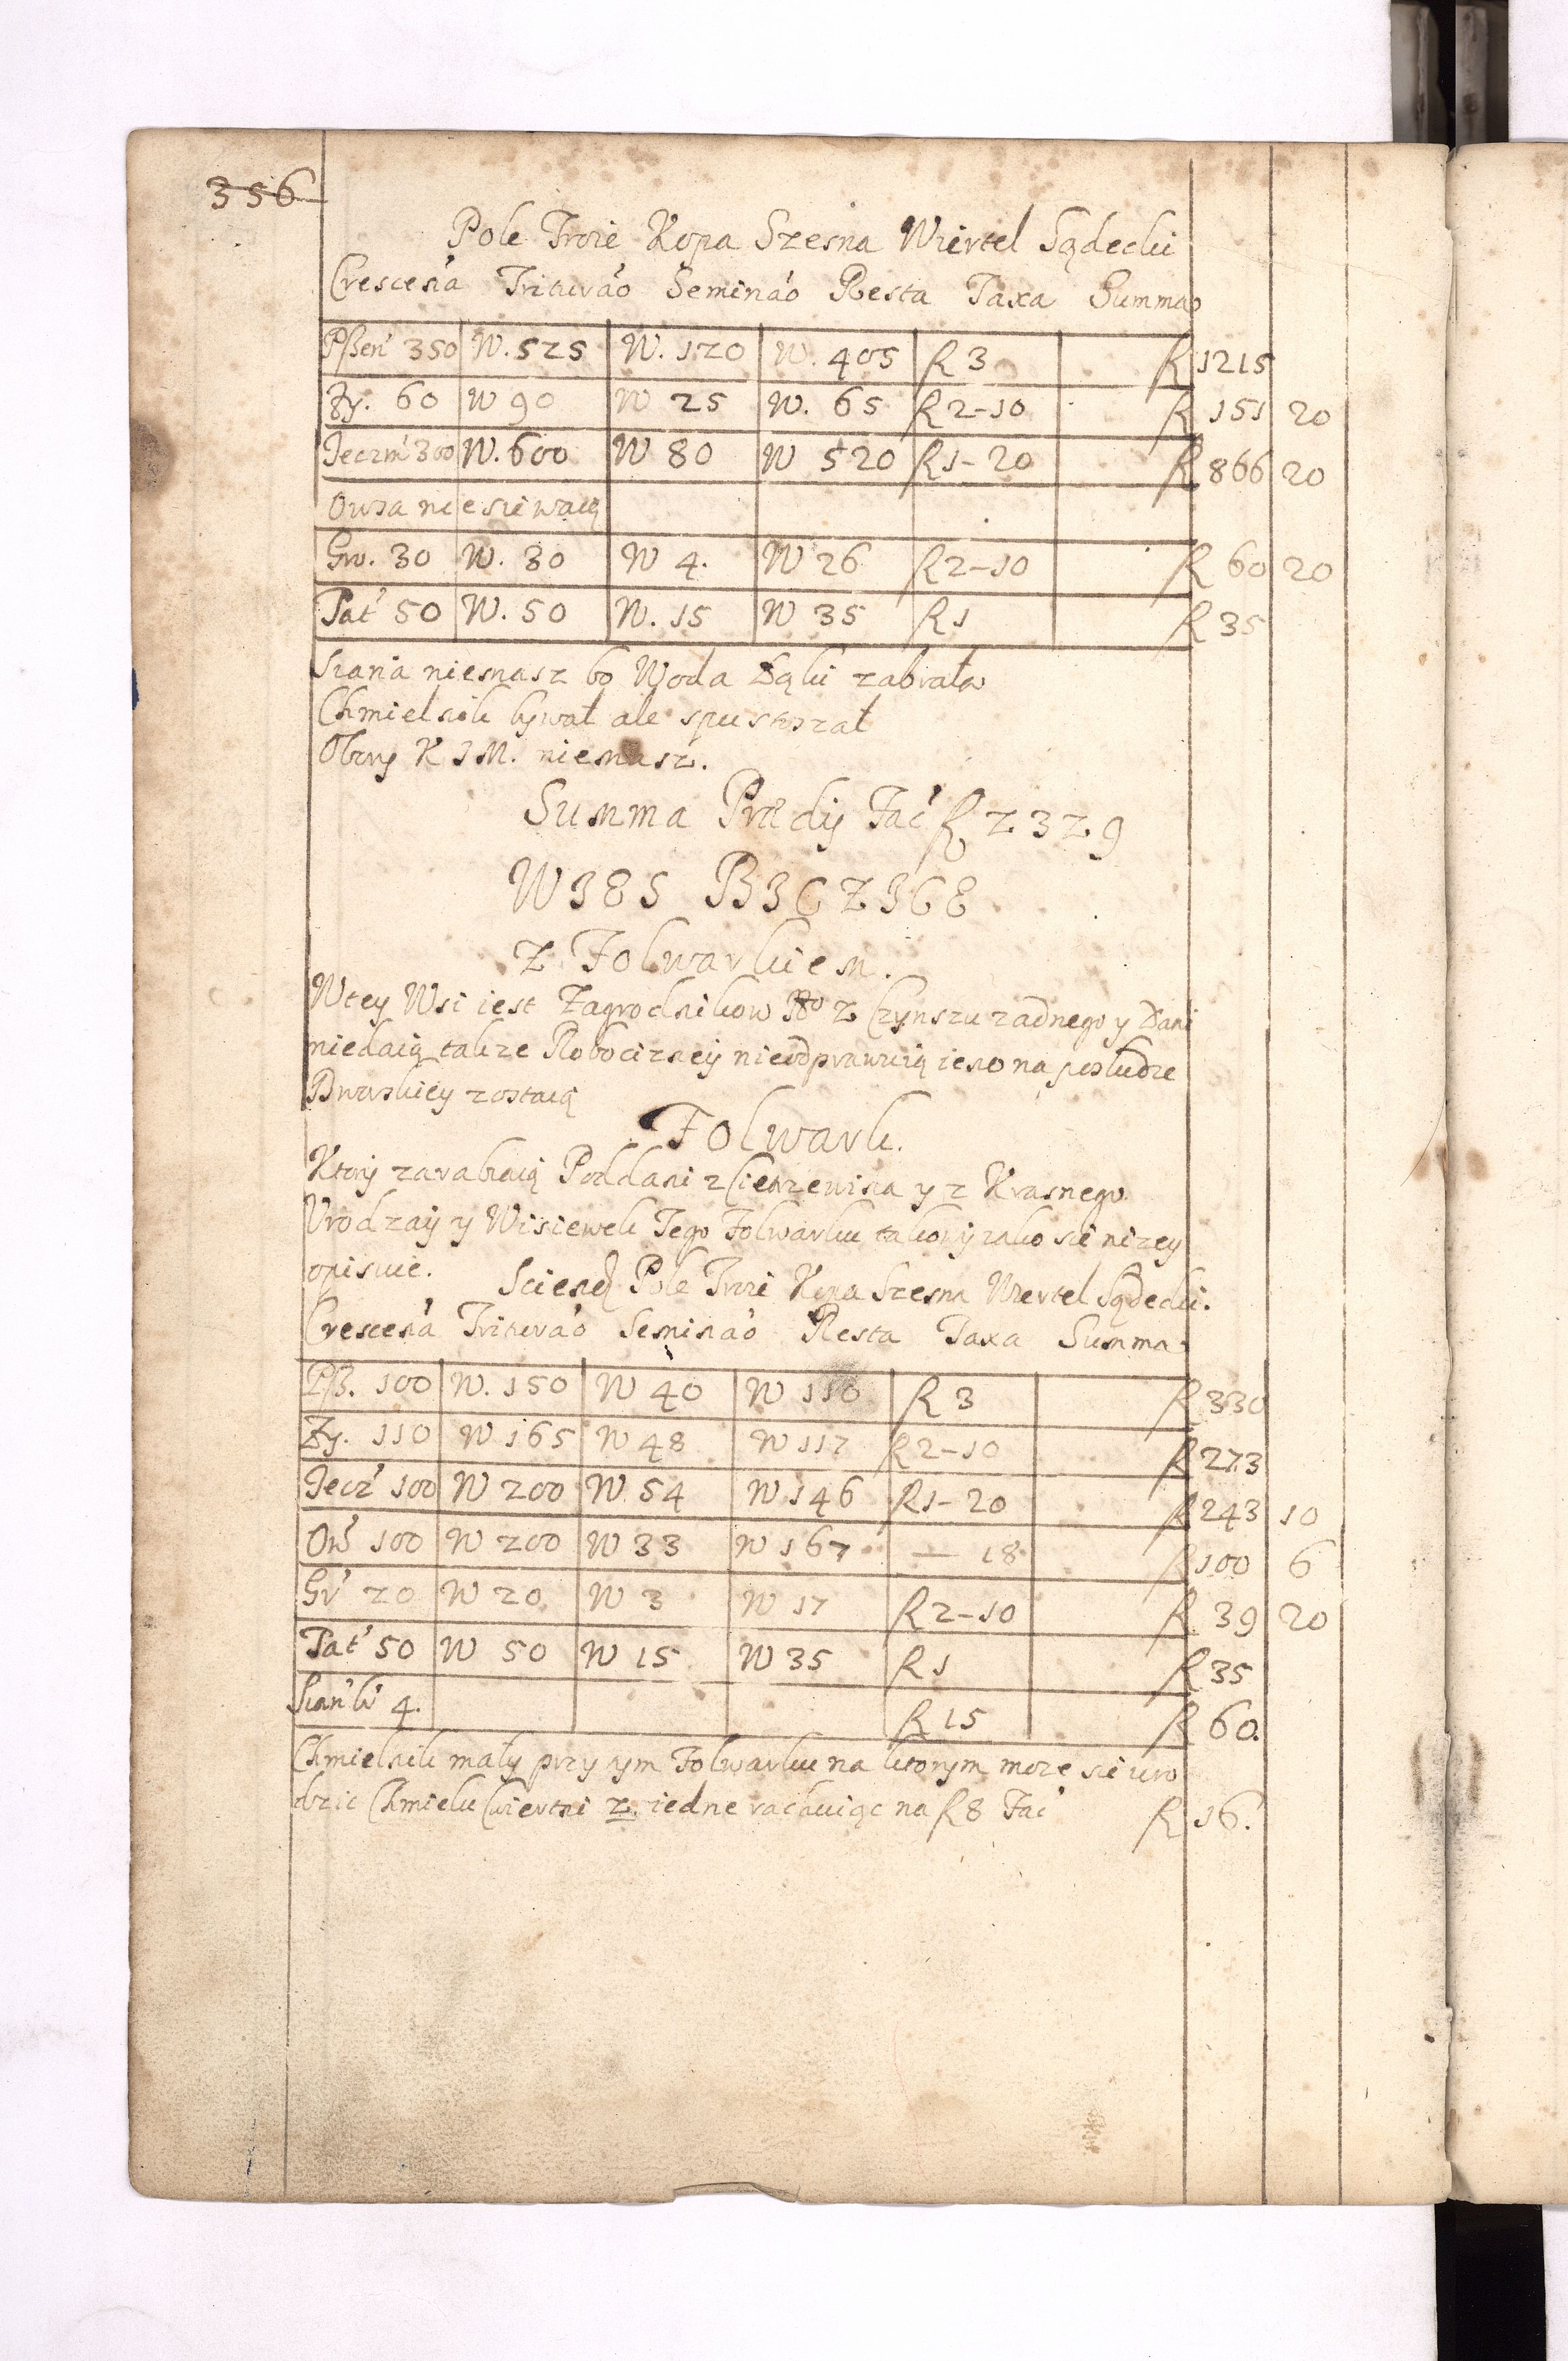 356
Pole Troie Kopa Szesna Wiertel Sądecki
Crescen̄a Triturāo Semināo Resta Taxa Summa
Pßen̄ 350 W. 525 W. 120 W. 405 R 3 R 1215
Zy. 60 W 90 W 25 W. 65 R 2-10 R 151 20
Jeczm̄ 300 W. 600 W 80 W 520 R 1-20 R 866 20
Owsa nie siewaią
Gro. 30 W. 30 W 4. W 26 R 2-10 R 60 20
Tat' 50 W. 50 W. 15 W 35 R 1 R 35
Siana niemasz bo Woda Łąki zabrała
Chmielnik bywał ale spustoszał
Obory K J M. niemasz.
Summa Prædij Fac' R 2329
WIES BICZICE
Z Folwarkiem.
Wtey Wsi iest Zagrodnikow Nro 2 Czynszu zadnego y Dani
niedaią takze Robocizney nieodprawuią ieno na posłudze
Dworskiey zostaią
Folwark.
Ktory zarabiaią Poddani z Cietrzewina y z Krasnego
Urodzaij y Wisiewek Tego Folwarku takowy iako się nizey
opisuie. Sciend Pole Troie Kopa Szesna Wiertel Sądecki.
Crescen̄a Triturāo Semināo Resta Taxa Summa
Pß. 100 W. 150 W 40 W 110 R 3 R 330
Zy. 110 W 165 W 48 W 117 R 2-10 R 273
Jecz' 100 W 200 W 54 W 146 R 1-20 R 243 10
Ow' 100 W 200 W 33 W 167 — 18 R 100 6
Gr' 20 W 20 W 3 W 17 R 2-10 R 39 20
Tat' 50 W 50 W 15 W 35 R 1 R 35
Sian' 4. R 15 R 60.
Chmielnik mały przy tym Folwarku na ktorym moze się uro
dzic Chmielu Cwiertni 2. iedne rachuiąc na R 8 Fac' R 16.